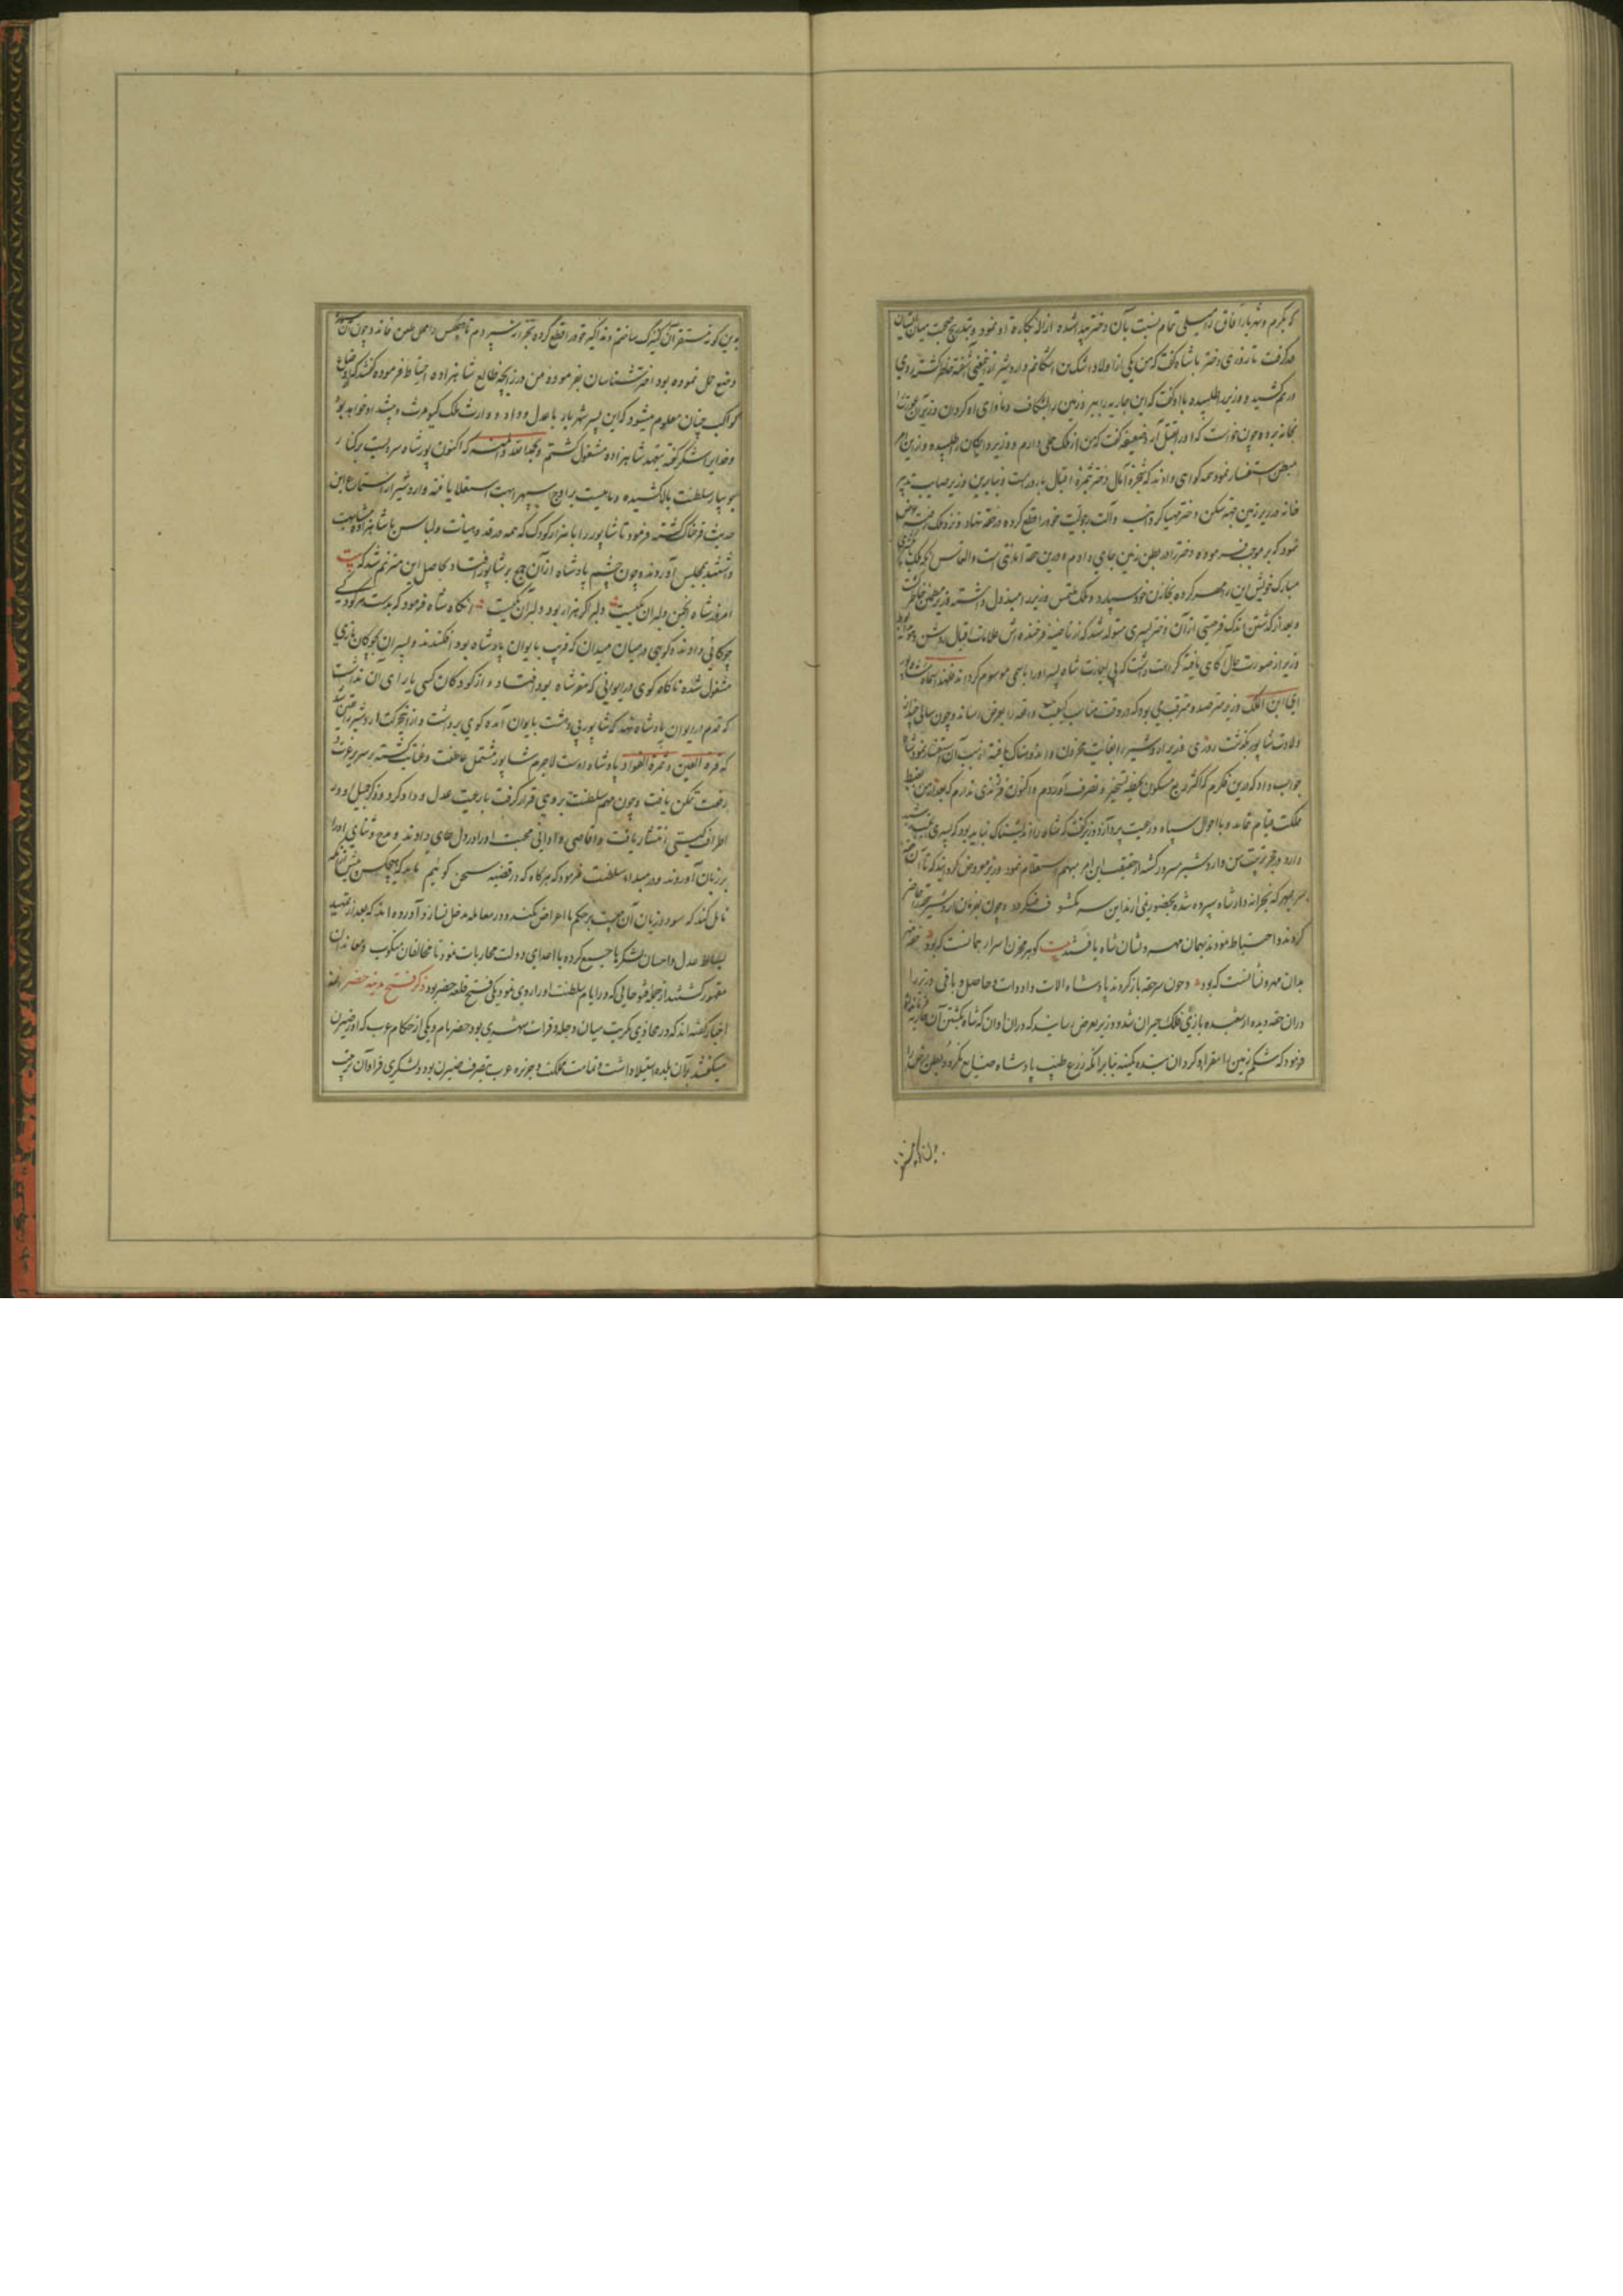 که بکرم وشهریار آفاق را میلی تمام نسبت بآن دختر پیدا شده ازاله بکارة او نمود و بتدریج محبت میان ایشان
کرفت تا روزی دختر با شاه کفت که من یکی از اولاد اشکان اشکانم واردشیر از این معنی آشفته خاطر کشته روی
درهم کشید و وزیر را طلبیده با او کفت که این جاریه را ببر وزمین را بشکاف و ماوای او کردان وزیر آن عورت را
بخانه برده چون خواست که اورا بقتل آرد ضعیفه کفت که من از ملک حملی دارم و وزیر طلبیده و از این امر
استفسار نمود همه کواهی دادند که شجره آمال دختر بثمره اقبال بارور است وبنابرین وزیر صایب تدبیر
خانه در زیر زمین جهة مسکن دختر مهیا کردانید وآلت رجولیت خود را قطع کرده در حقه نهاد ونزد ملک رفته بعرض
نمود که بر موجب فرموده دختر را در بطن زمین جای دادم ودرین حقه امانتی است والتماس آنکه ملک
مبارک خویش این را مهر کرده بخازن خود سپارد و ملک ملتمس وزیر را مبذول داشته وزیر مطمئن خاطر کشت
وبعد از کذشتن اندک فرصتی از آن دختر پسری متولد شد که از ناصیه فرخنده اش علامات اقبال روشن
وزیر از صورت حال آکاهی یافته کراهت داشت که بی اجازت شاه پسر اورا باسمی موسوم کرداند فلهذا سماه شاه پور
ای ابن الملک وزیر مترصد ومترقب می بود که در وقت مناسب کیفیت واقعه را بعرض رساند وچون سالی چند از
ولادت شاپور بکذشت روزی وزیر اردشیر را بغایت محزون واندوهناک یافته از سبب آن استفسار نمود شاه
جواب داد که درین فکرم که اکثر ربع مسکون بحیطه تسخیر وتصرف آوردم واکنون فرزندی ندارم که بعد از من بضبط
مملکت قیام نماید وبا احوال سپاه ورعیت پردازد وزیر کفت که شاه را اندیشناک نباید بود که پسری
دارد ودر حجر تربیت من واردشیر مسرور کشته از حقیقت این امر مبهم استعلام نمود وزیر معروض کردانید که تا آن حقه
سر بمهر که بخزانه دار شاه سپرده شده بحضور نمی آرند این سر مکشوف نمیکردد وچون بفرمان اردشیر حقه را حاضر
کردند واحتیاط نمودند بهمان مهر ونشان شاه یافتند بیت کوهر مخزن اسرار همانست که بود حقه مهر
بدان مهر ونشانست که بود وچون سر حقه باز کردند پادشاه آلات
دران حقه دیده از شعبده بازی فلک حیران شد ووزیر بعرض رسانید که دران اوان که شاه بکشتن آن جاریه
فرمود که شکم زمین را مقر او کردان بنده کمینه بنابر آنکه زرع طیب پادشاه ضایع نکردد
بدین کونه مستقر آن کنیزک ساختم وذکر خود را قطع کرده بخزانه سپردم تا هیچکس را محل طعن نماند وچون آن
وضع حمل نموده بود اخترشناسان بفرموده من در زایجه طالع شاهزاده احتیاط فرموده کفتند که از اوضاع
کواکب چنان معلوم میشود که این پسر شهریار با عدل وداد و وارث ملک کیومرث وجمشید او خواهد بود
وخدایرا شکر کفته بتعهد شاهزاده مشغول کشتم وبحمد الله والمنه که اکنون پور شاه سرویست بر کنار
جویبار سلطنت بالا کشیده وماهیست بر اوج سپهر ابهت استعلا یافته واردشیر از استماع این
حدیث فرحناک کشته فرمود تا شاپور را با هزار کودک که همه در قد وهیات ولباس با شاهزاده مشابهت
داشتند بمجلس آوردند وچون چشم پادشاه ازآن جمع بر شاپور افتاد بحاصل این مترنم شد که بیت
امروز شاه انجمن دلبران یکیست دلبر اکر هزار بود دلبر آن یکیست آنکاه شاه فرمود که بدست هر کودکی
چوکانی دادند وکوی در میان میدان که قریب بایوان پادشاه بود افکندند و پسران بکوی بازی
مشغول شده ناکاه کوی در ایوانی که مقر شاه بود افتاد و از کودکان کسی یارای آن نداشت
که قدم در ایوان پادشاه نهد که شاپور بی دهشت بایوان آمده کوی برداشت و از این حرکت اردشیر را یقین شد
که قرة العین وثمرة الفواد پادشاه اوست لاجرم شاپور مشتمل عاطفت وعنایت کشته بر سریر عزت و
رفعت تمکن یافت وچون مهم سلطنت بروی قرار کرفت با رعیت عدل و داد کرد وذکر جمیل او در
اطراف کیتی انتشار یافت واقاصی وادانی محبت اورا در دل جای دادند و مدح وثنای اورا
بر زبان آوردند ودر مبداء سلطنت فرمود که هر کاه که در قضیه سخن کوئیم باید که هیچکس
تامل کند که سود وزیان آن چیست بر حکم ما اعراض نکنند ودر معامله مدخل نسازد وآورده اند که بعد از تمهید
بساط عدل واحسان لشکرها جمع کرده با اعدای دولت محاربات نمود تا مخالفان منکوب ومعاندان
مقهور کشتند از جمله فتوحاتی که در ایام سلطنت اورا روی نمود یکی فتح قلعه حضر بود ذکر فتح مدینه حضر ائمه
اخبار کفته اند که در محاذی تکریت میان دجله وفرات شهری بود حضر نام ویکی از حکام عرب که اورا ضیزن
میکفتند بر آن بلده استیلا داشت وتمامت مملکت وجزیره عرب بتصرف ضیزن بود ولشکری فراوان مرتب
بدین کونه